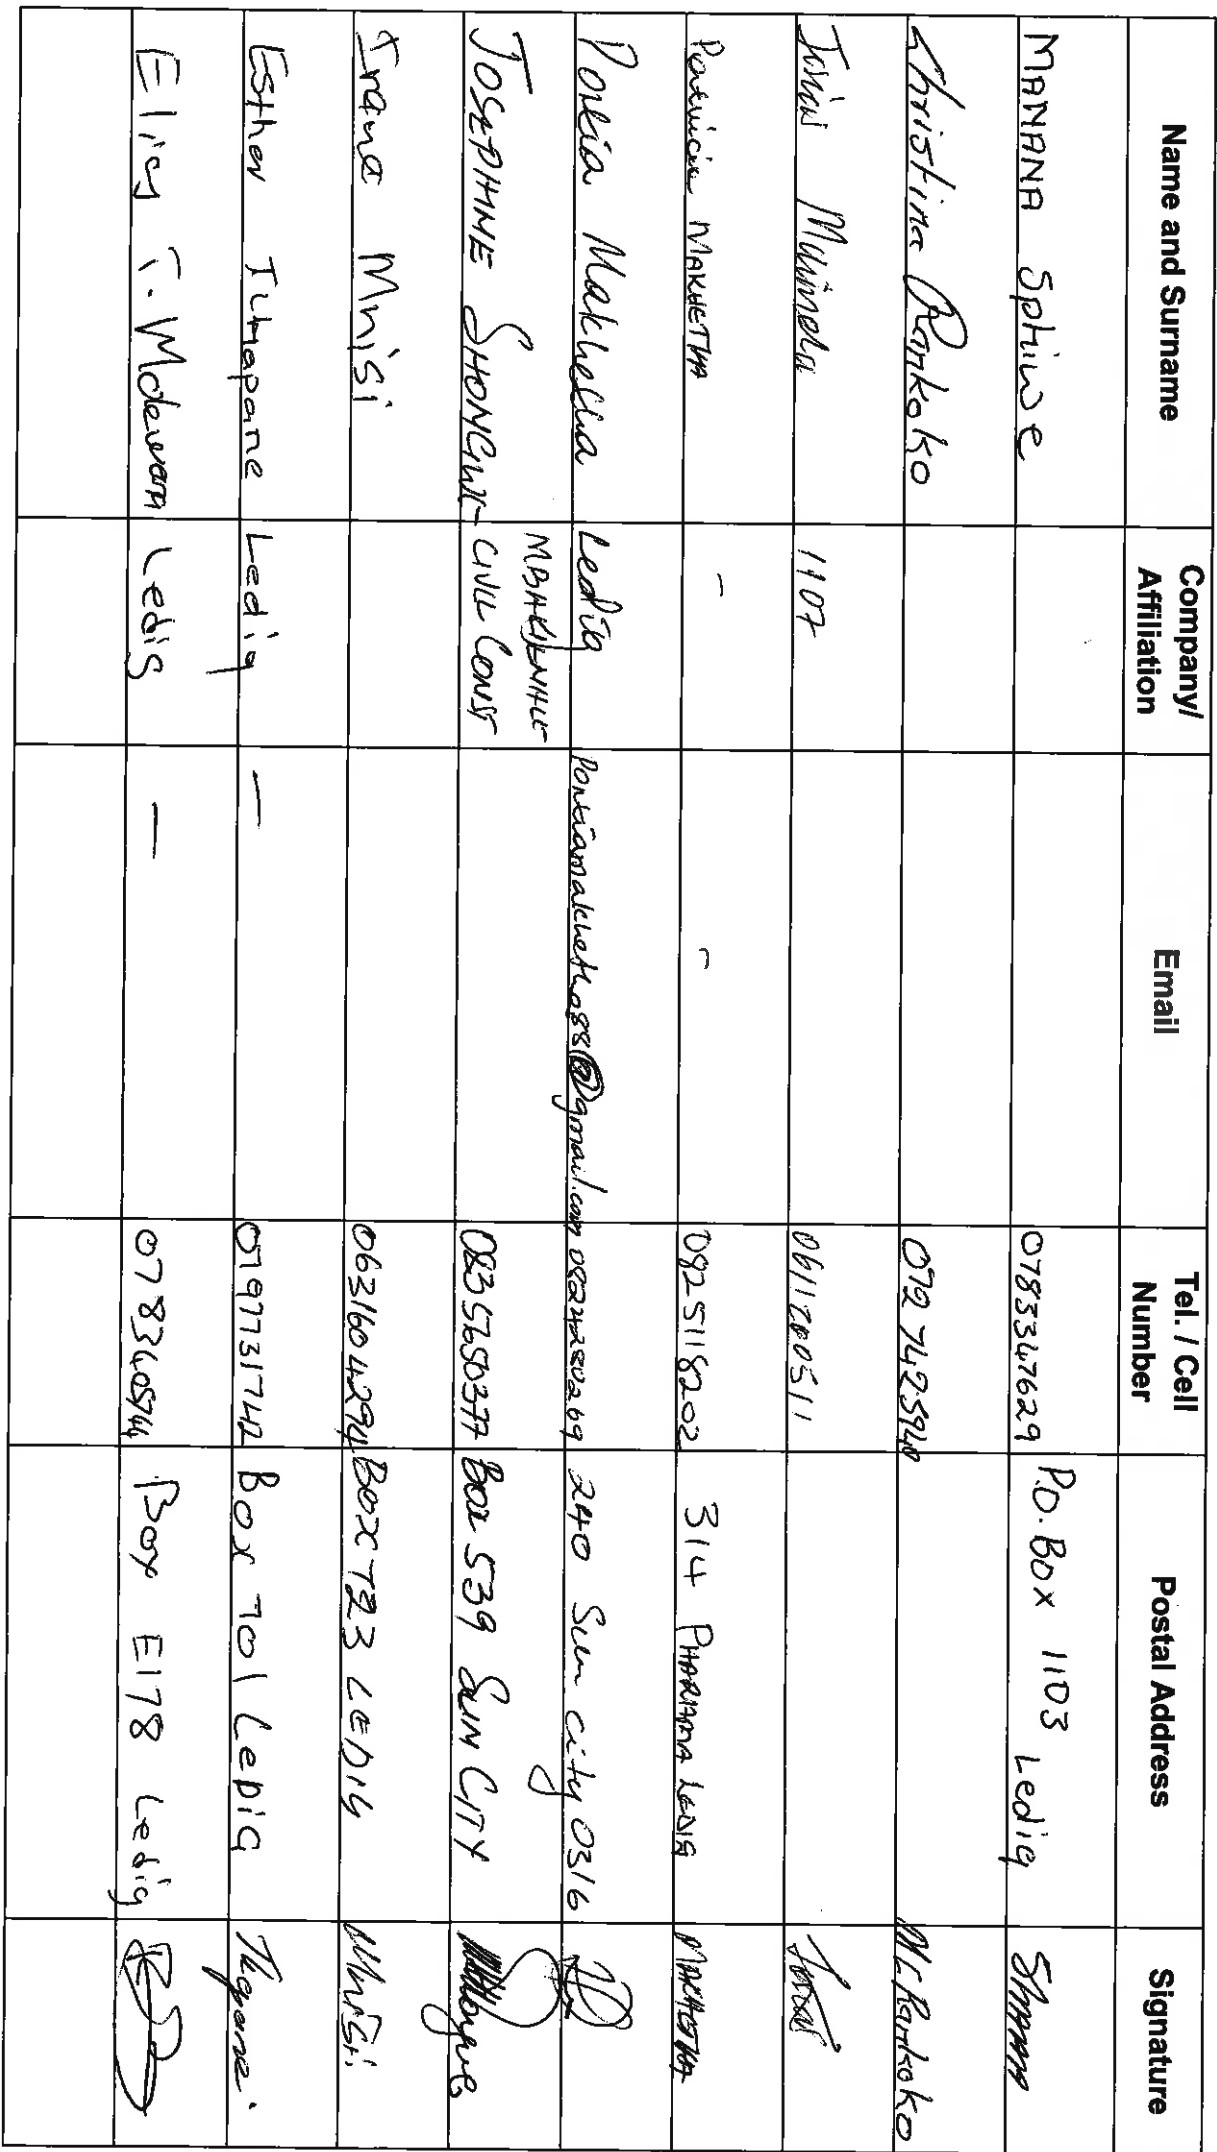 Name and Surname Company/ Affiliation Email Tel. / Cell Number Postal Address Signature
MANANA Sphiwe 0783347629 P.O. Box 1103 Ledig
Christina Rankoko 072 742 5940 M.C Rankoko
1107 0611200511
Patricia MAKHETHA - - 0825118202 314 PHARAMA LEDIG MAKHETHA
Portia Makhetha Ledig Portiamakhetha88@gmail.com 2440 Sun city 0316
JOSEPHINE SHONGWE CIVIL CONST 0835650377 Box 539 SUN CITY
Irene Mnisi 0631604294 BOX 723 LEDIG Mnisi
Esther Tlhapane Ledig — 0797731742 Box 701 LeDiG Tlhapane.
Ledig — Box E178 Ledig